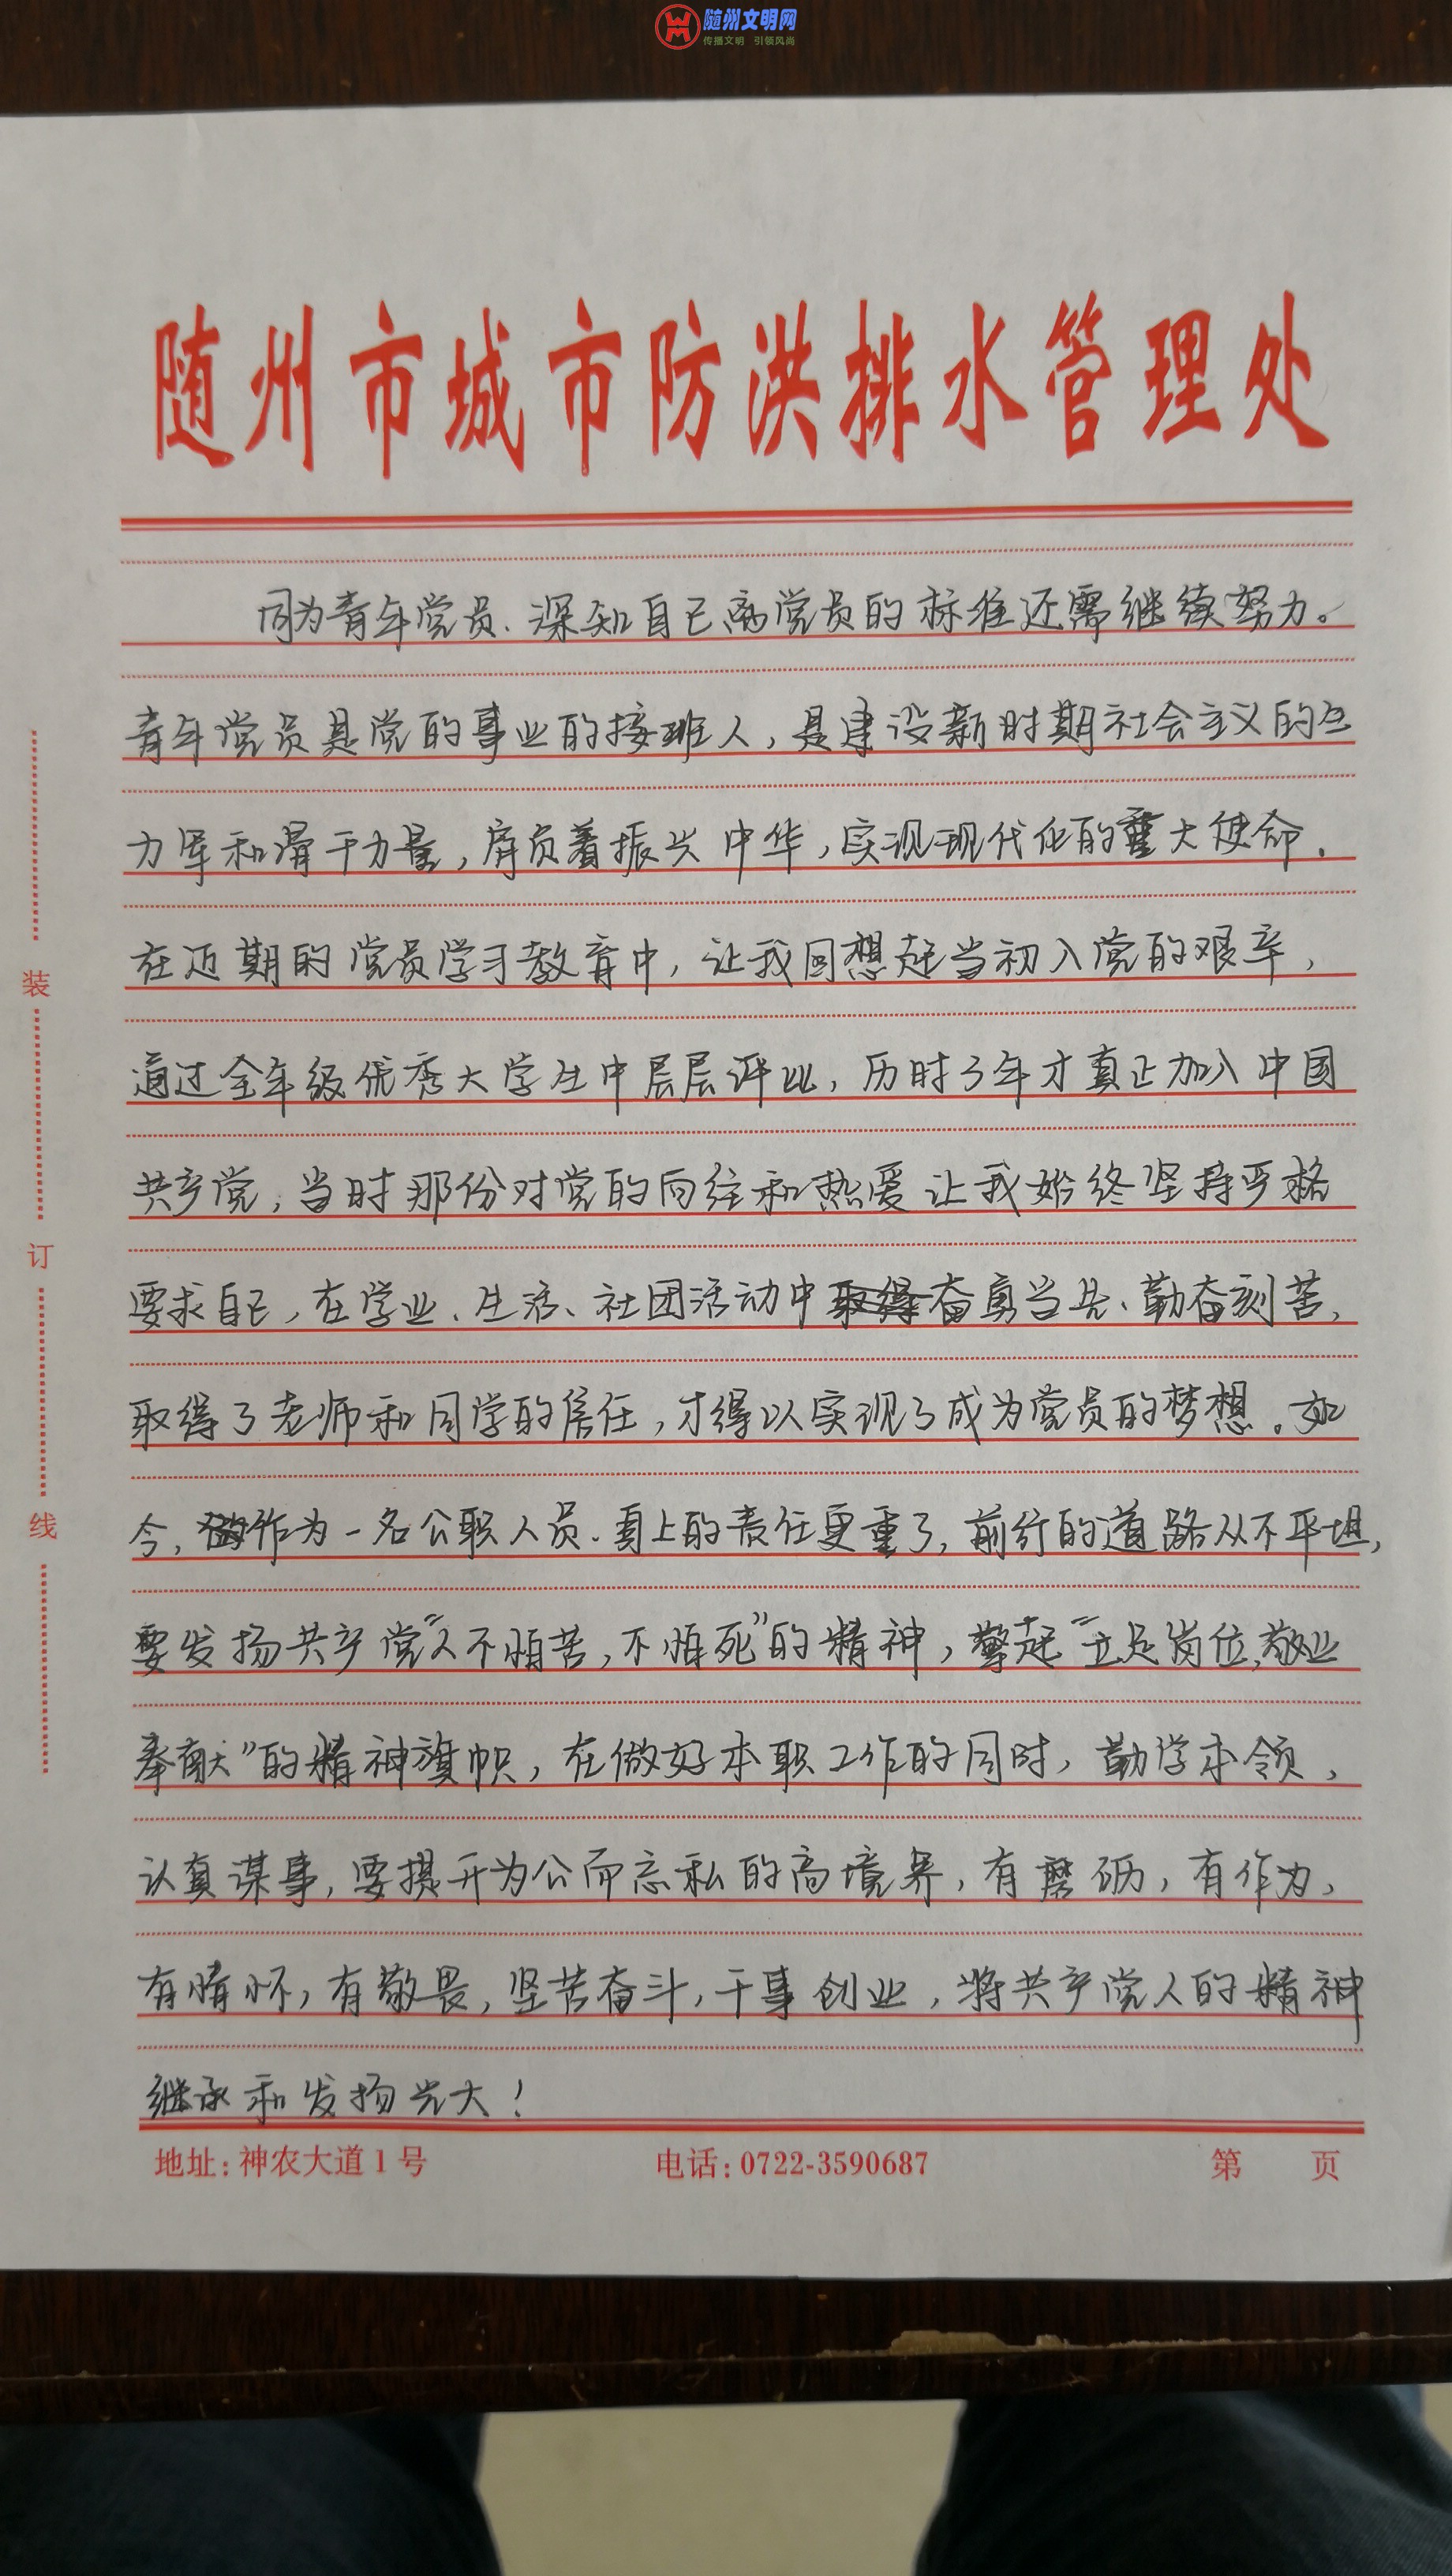 随州文明网
传播文明 引领风尚
随州市城市防洪排水管理处
同为青年党员、深知自己离党员的标准还需继续努力。
青年党员是党的事业的接班人，是建设新时期社会主义的生
力军和骨干力量，肩负着振兴中华，实现现代化的重大使命.
在近期的党员学习教育中，让我回想起当初入党的艰辛，
通过全年级优秀大学生中层层评比，历时3年才真正加入中国
共产党，当时那份对党的向往和热爱让我始终坚持严格
要求自己，在学业、生活、社团活动中奋勇当先、勤奋刻苦，
取得了老师和同学的信任，才得以实现了成为党员的梦想。如
今，作为一名公职人员、肩上的责任更重了，前行的道路从不平坦，
要发扬共产党“人不怕苦，不怕死”的精神，擎起“立足岗位，敬业
奉献”的精神旗帜，在做好本职工作的同时，勤学本领，
认真谋事，要提升为公而忘私的高境界，有磨砺，有作为，
有情怀，有敬畏，坚苦奋斗，干事创业，将共产党人的精神
继承和发扬光大！
装
订
线
地址：神农大道1号 电话：0722-3590687 第 页